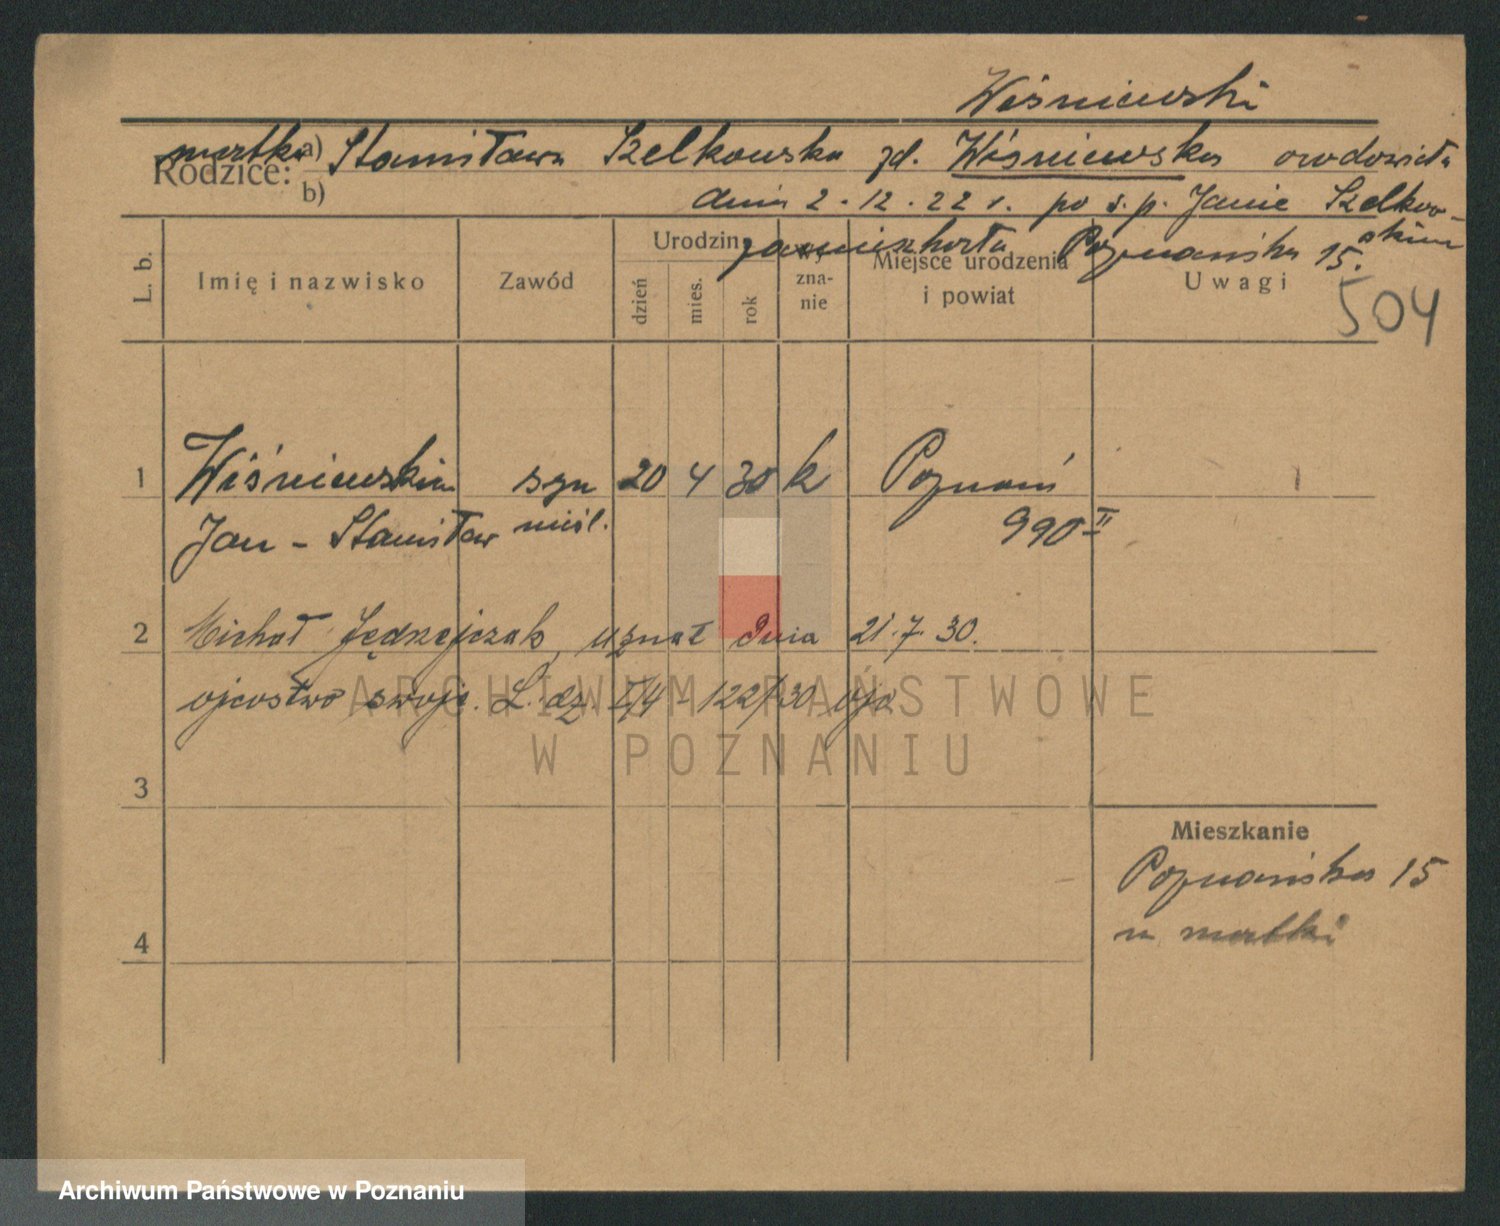 Wiśniewski
Rodzice: matka a) Stanisława Szelkowska zd. Wiśniewska owdowiała
b) dnia 2.12.22 r. po ś.p. Janie Szelkow-
skim
zamieszkała Poznańska 15.
504
L. b.
Imię i nazwisko
Zawód
Urodzin
dzień
mies.
rok
zna-
nie
Miejsce urodzenia
i powiat
Uwagi
1 Wiśniewski syn 20 4 30 k Poznań
Jan - Stanisław nieśl. 990 II
2 Michał Jędrzejczak, uznał dnia 21.7.30.
ojcostwo swoje. L. dz. 122/30
3
Mieszkanie
Poznańska 15
u matki
4
ARCHIWUM PAŃSTWOWE
W POZNANIU
Archiwum Państwowe w Poznaniu